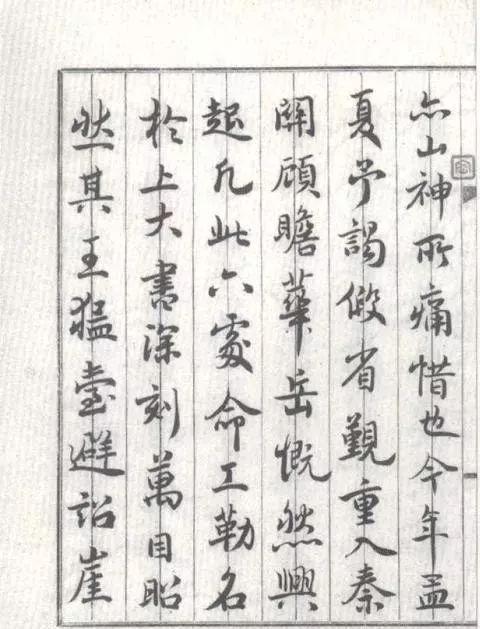 亦山神所痛惜也今年孟
夏予謁假省觀重入秦
關顧瞻華岳慨然興
起凡此六處命工勒名
於上大書深刻萬目昭
然其王猛臺避詔崖